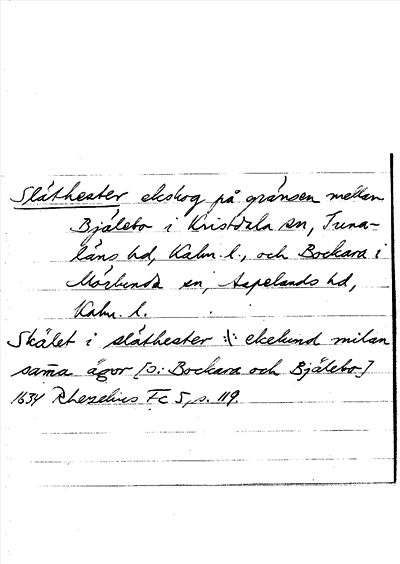 Slåtheater ekskog på gränsen mellan
Bjälebo i Kristdala sn, Tuna-
läns hd, Kalm. l., och Bockara i
Mörlunda sn, Aspelands hd,
Kalm. l.
Skälet i slåtheater :/: ekelund milan
sam̄a ägor [ɔ: Bockara och Bjälebo]
1634 Rhezelius Fc 5, s. 119